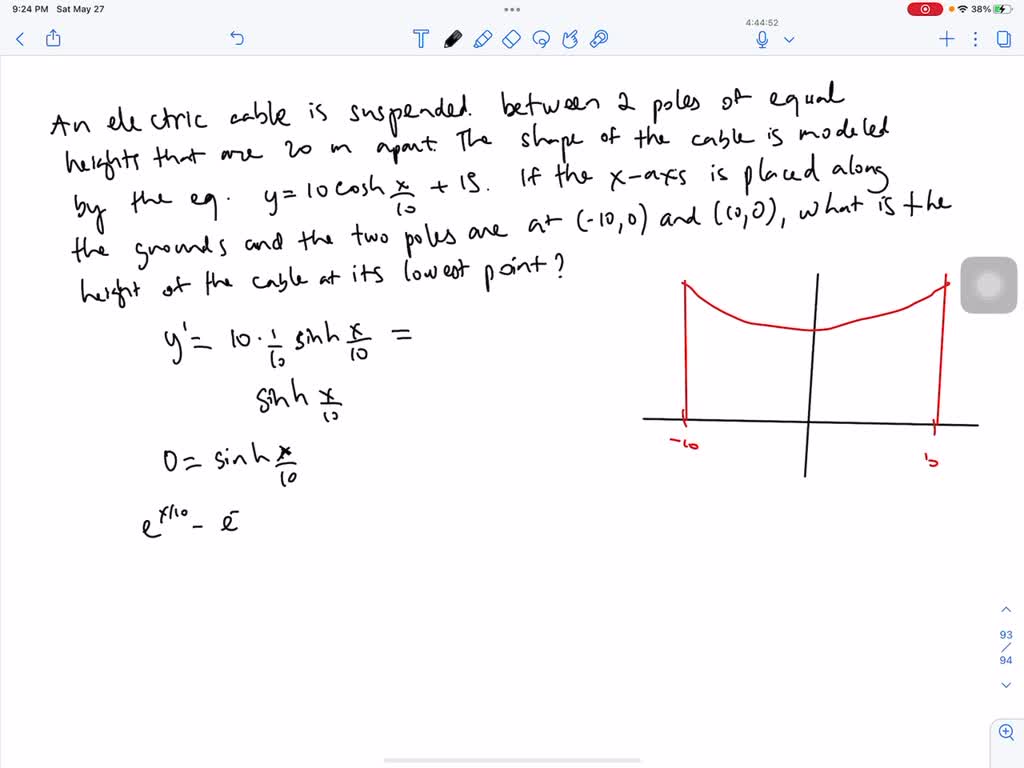 9:24 PM Sat May 27
38%
4:44:52
An electric cable is suspended. between 2 poles of equal
heights that are 20 m apart. The shape of the cable is modeled
by the eq. y = 10 cosh x/10 + 15. If the x-axs is placed along
the grounds and the two poles are at (-10,0) and (10,0), what is the
height of the cable at its lowest point?
y' = 10 · 1/10 sinh x/10 =
sinh x/10
0 = sinh x/10
e^x/10 - e^-
-10
10
93
/
94